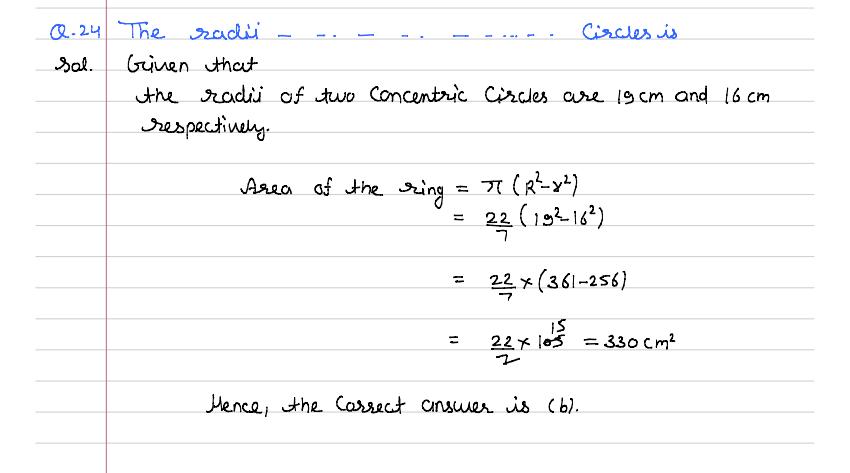 Q.24 The radii - -. - -. - -...-. Circles is
Sol. Given that
the radii of two Concentric Circles are 19 cm and 16 cm
respectively.
Area of the ring = π (R²-r²)
= 22/7 (19²-16²)
= 22/7 × (361-256)
= 22/7 × 105 15 = 330 cm²
Hence, the Correct answer is (b).